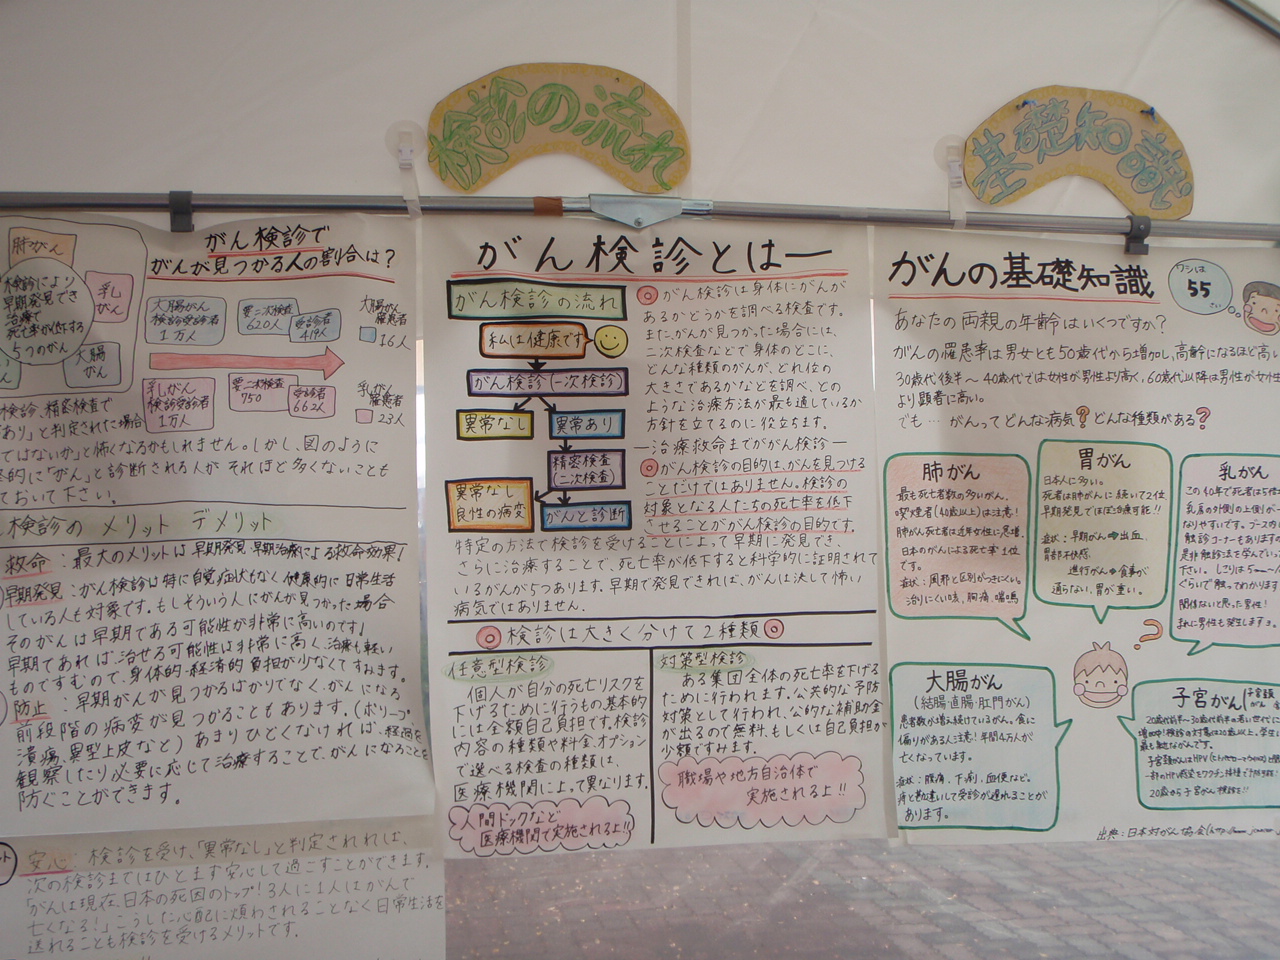 検診の流れ
基礎知識
肺がん
乳がん
大腸がん
検診により
早期発見でき
治療で
死亡率が低下する
5つのがん
がん検診で
がんが見つかる人の割合は?
大腸がん
検診受診者
1万人
要二次検査
620人
受診者
419人
大腸がん
罹患者
16人
乳がん
検診受診者
1万人
要二次検査
750
受診者
662人
乳がん
罹患者
23人
検診、精密検査で
あり」と判定された場合
ではないか」と怖くなるかもしれません。しかし、図のように
的に「がん」と診断される人が それほど多くないことも
ておいて下さい。
検診の メリット デメリット
救命:最大のメリットは早期発見・早期治療による救命効果!
早期発見:がん検診は特に自覚症状もなく健康的に日常生活
している人も対象です。もしそういう人にがんが見つかった場合
そのがんは早期である可能性が非常に高いのです!
早期であれば、治せる可能性は非常に高く、治療も軽い
ものですむので、身体的・経済的負担が少なくてすみます。
防止:早期がんが見つかるばかりでなく、がんになる
前段階の病変が見つかることもあります。(ポリープ、
潰瘍、異型上皮など)あまりひどくなければ、経過を
観察したり必要に応じて治療することで、がんになることを
防ぐことができます。
安心:検診を受け、「異常なし」と判定されれば、
次の検診まではひとまず安心して過ごすことができます。
「がんは現在、日本の死因のトップ!3人に1人はがんで
亡くなる!」こうした心配に煩わされることなく日常生活を
送れることも検診を受けるメリットです。
がん検診とはー
がん検診の流れ
私は健康です
がん検診(一次検診)
異常なし
異常あり
精密検査
(二次検査)
異常なし
良性の病変
がんと診断
◎がん検診は身体にがんが
あるかどうかを調べる検査です。
また、がんが見つかった場合には、
二次検査などで身体のどこに、
どんな種類のがんが、どれ位の
大きさであるかなどを調べ、どの
ような治療方法が最も適しているか
方針を立てるのに役立ちます。
―治療救命までががん検診―
◎がん検診の目的は、がんを見つける
ことだけではありません。検診の
対象となる人たちの死亡率を低下
させることががん検診の目的です。
特定の方法で検診を受けることによって早期に発見でき、
さらに治療することで、死亡率が低下すると科学的に証明されて
いるがんが5つあります。早期で発見できれば、がんは決して怖い
病気ではありません。
◎検診は大きく分けて2種類◎
任意型検診
個人が自分の死亡リスクを
下げるために行うもの。基本的
には全額自己負担です。検診
内容の種類や料金、オプション
で選べる検査の種類は、
医療機関によって異なります。
人間ドックなど
医療機関で実施されるよ!!
対策型検診
ある集団全体の死亡率を下げる
ために行われます。公共的な予防
対策として行われ、公的な補助金
が出るので無料、もしくは自己負担が
少額ですみます。
職場や地方自治体で
実施されるよ!!
がんの基礎知識
ワシは
55
さい
あなたの両親の年齢はいくつですか?
がんの罹患率は男女とも50歳代から増加し、高齢になるほど高い
30歳代後半~40歳代では女性が男性より高く、60歳代以降は男性が女性
より顕著に高い。
でも… がんってどんな病気?どんな種類がある?
肺がん
最も死亡者数の多いがん。
喫煙者(40歳以上)は注意!
肺がん死亡者は近年女性に急増。
日本のがんによる死亡率1位
です。
症状:風邪と区別がつきにくい。
治りにくい咳、胸痛、喘鳴
胃がん
日本人に多い。
死者は肺がんに続いて2位
早期発見でほぼ治療可能!!
症状:早期がん→出血、
胃部不快感
進行がん→食事が
通らない、胃が重い。
乳がん
この40年で死亡者は5倍
乳房の外側の上側が
なりやすいです。ブース内
触診コーナーもありますの
是非触診法を学んでいっ
下さい。しこりは5mm~
ぐらいで触ってわかります
関係ないと思った男性!
まれに男性も発生しますよ。
大腸がん
(結腸・直腸・肛門がん)
患者数は増え続けているがん。食に
偏りがある人注意!年間4万人が
亡くなっています。
症状:腹痛、下痢、血便など。
痔と勘違いして受診が遅れることが
あります。
子宮がん
20歳代前半~30歳代前半の若い世代に
増加中!検診の対象は20歳以上。学生に
最も身近ながんです。
子宮頸がんはHPV
一部のHPV感染をワクチン接種で予防可能!
20歳から子宮がん検診を!!
出典:日本対がん協会